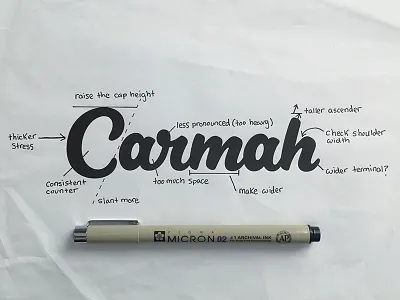 raise the cap height
taller ascender
less pronounced (too heavy)
check shoulder
width
thicker
stress
Carmah
wider terminal?
Consistent
counter
too much space
make wider
slant more
SIGMA
MICRON 02 #1 ARCHIVAL INK
AP